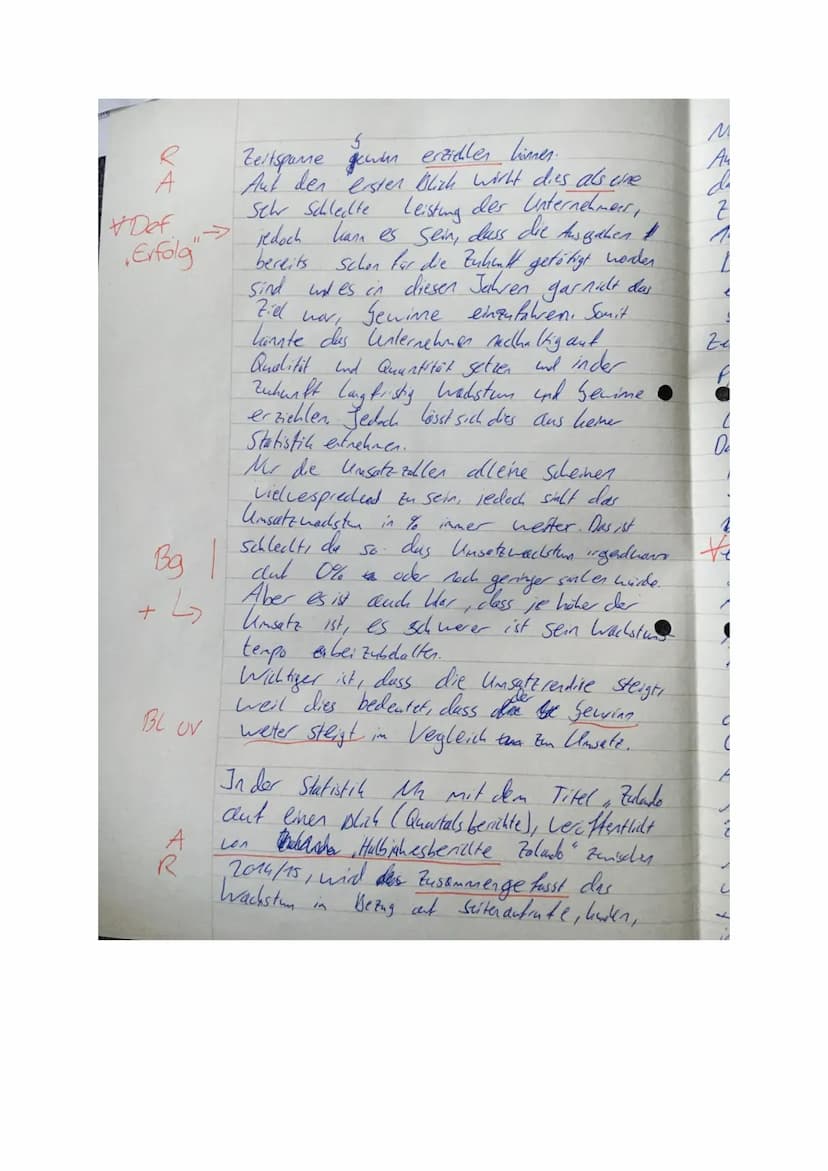 R Zeitspanne Gewinn erziehlen können.
A Auf den ersten Blick wirkt dies als eine
sehr schlechte Leistung der Unternehmer,
∀ Def „Erfolg“ → jedoch kann es sein, dass die Ausgaben
bereits schon für die Zukunft getätigt worden
sind und es in diesen Jahren garnicht das
Ziel war, Gewinne einzufahren. Somit
könnte das Unternehmen nachhaltig auf
Qualität und Quantität setzen und in der
Zukunft langfristig Wachstum und Gewinne
erziehlen. Jedoch lässt sich dies aus keiner
Statistik entnehmen.
die Umsatzzahlen alleine scheinen
vielvesprechend zu sein, jedoch sinkt das
Umsatzwachstum in % immer weiter. Das ist
Bg schlecht, da so das Umsatzwachstum irgendwann
auf 0% oder noch geringer sinken würde.
+ ↳ Aber es ist auch klar, dass je höher der
Umsatz ist, es schwerer ist sein Wachstums-
tempo beizubehalten.
Wichtiger ist, dass die Umsatzrendite steigt,
weil dies bedeutet, dass der Gewinn
BL UV weiter steigt im Vergleich zum Umsatz.
In der Statistik M2 mit dem Titel „Zalando
auf einen Blick (Quartalsberichte), veröffentlicht
A von „Halbjahesberichte Zalando“ zwischen
R 2014/15, wird Zusammengefasst das
Wachstum in Bezug auf Seitenaufrufe, Kunden,